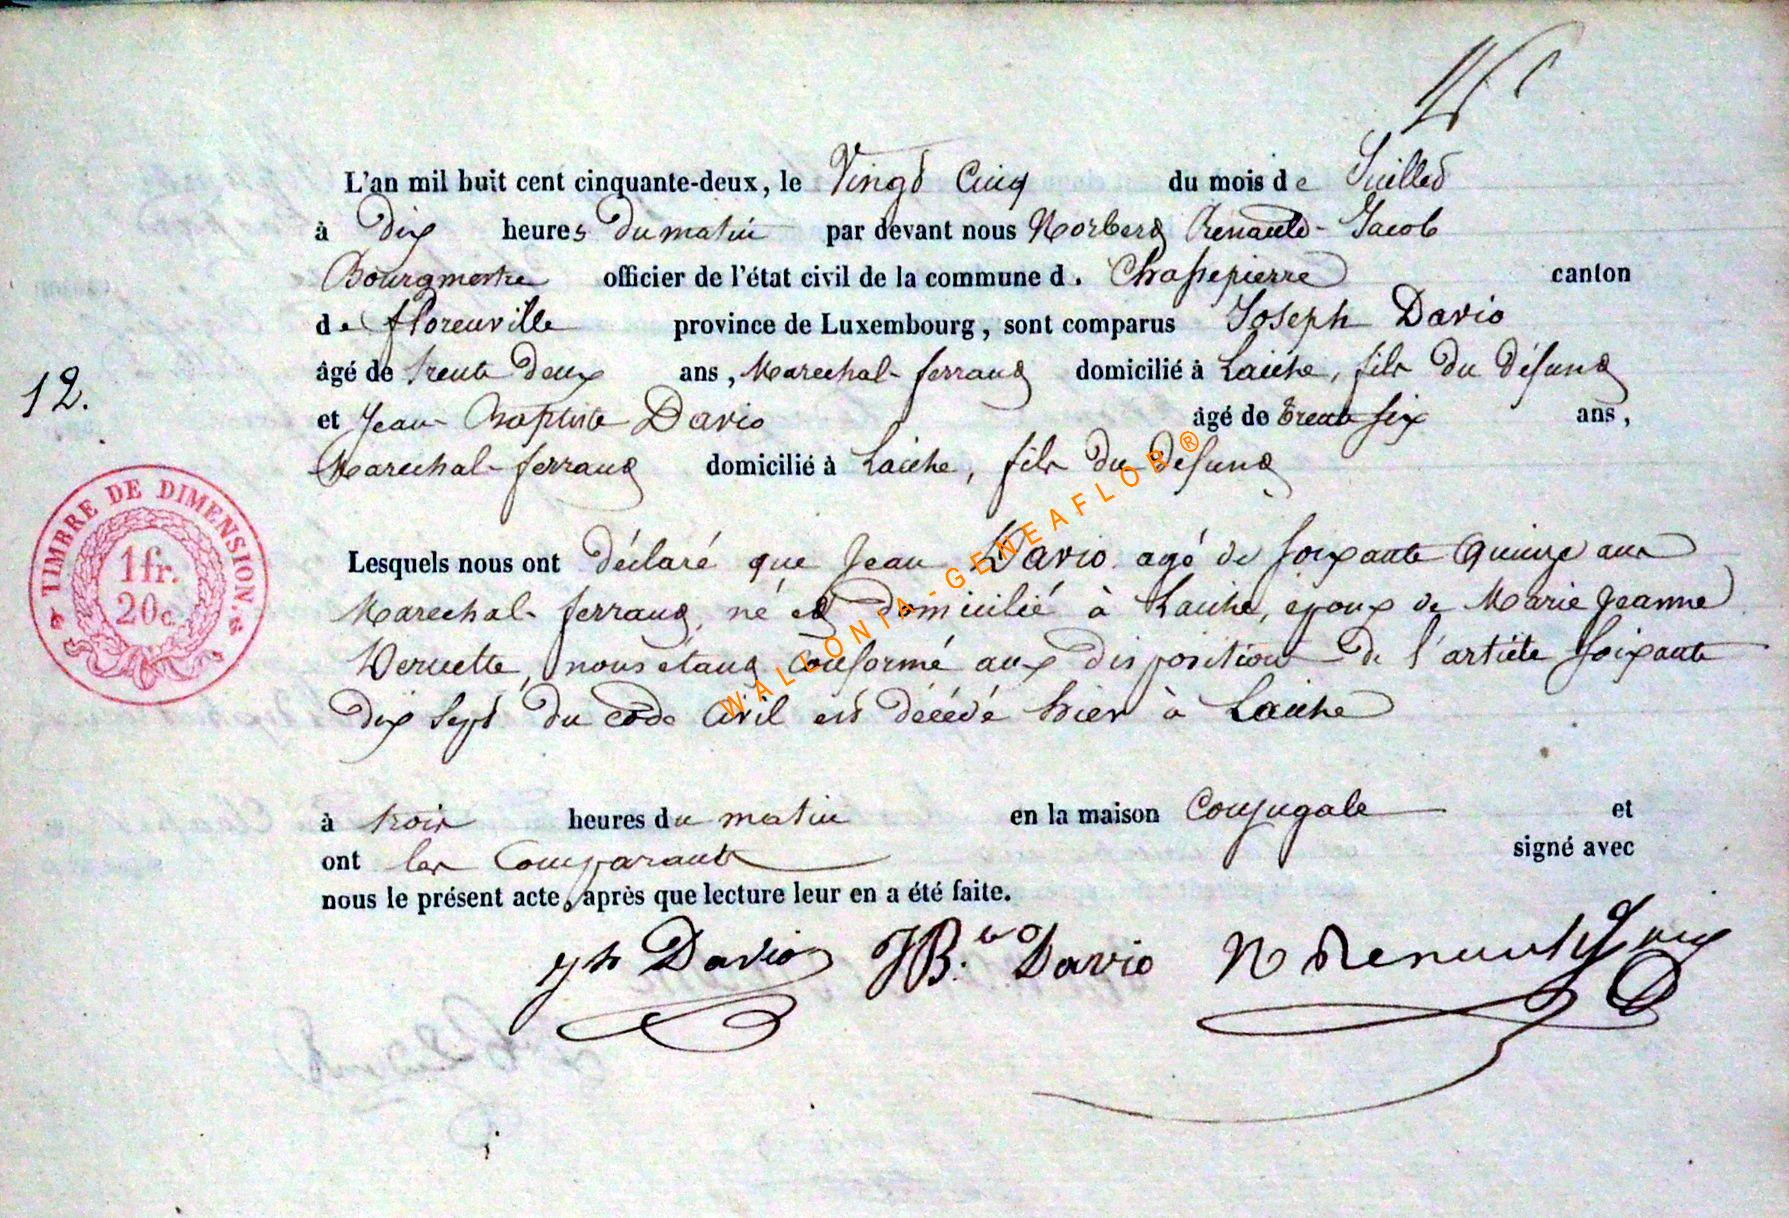 L'an mil huit cent cinquante-deux, le Vingt Cinq du mois de Juillet
à dix heures du matin par devant nous Norbert Renauld-Jacob
Bourgmestre officier de l'état civil de la commune d. Chassepierre canton
de florenville province de Luxembourg, sont comparus Joseph Davio
âgé de trente deux ans, Marechal-ferrant domicilié à Laiche, fils du défunt
12.
et Jean Baptiste Davio âgé de trente six ans,
Marechal-ferrant domicilié à Laiche, fils du défunt
TIMBRE DE DIMENSION.
1 fr.
20c.
Lesquels nous ont déclaré que Jean Davio agé de soixante quinze ans
Marechal-ferrant, né et domicilié à Laiche, époux de Marie Jeanne
nous étant conformé aux disposition de l'article soixante
dix sept du code civil est décédé hier à Laiche
à trois heures du matin en la maison Conjugale et
ont les Comparants signé avec
nous le présent acte, après que lecture leur en a été faite.
Jh Davio JBte Davio N Renauld Jacob
WALLONIA-GENEAFLOR®